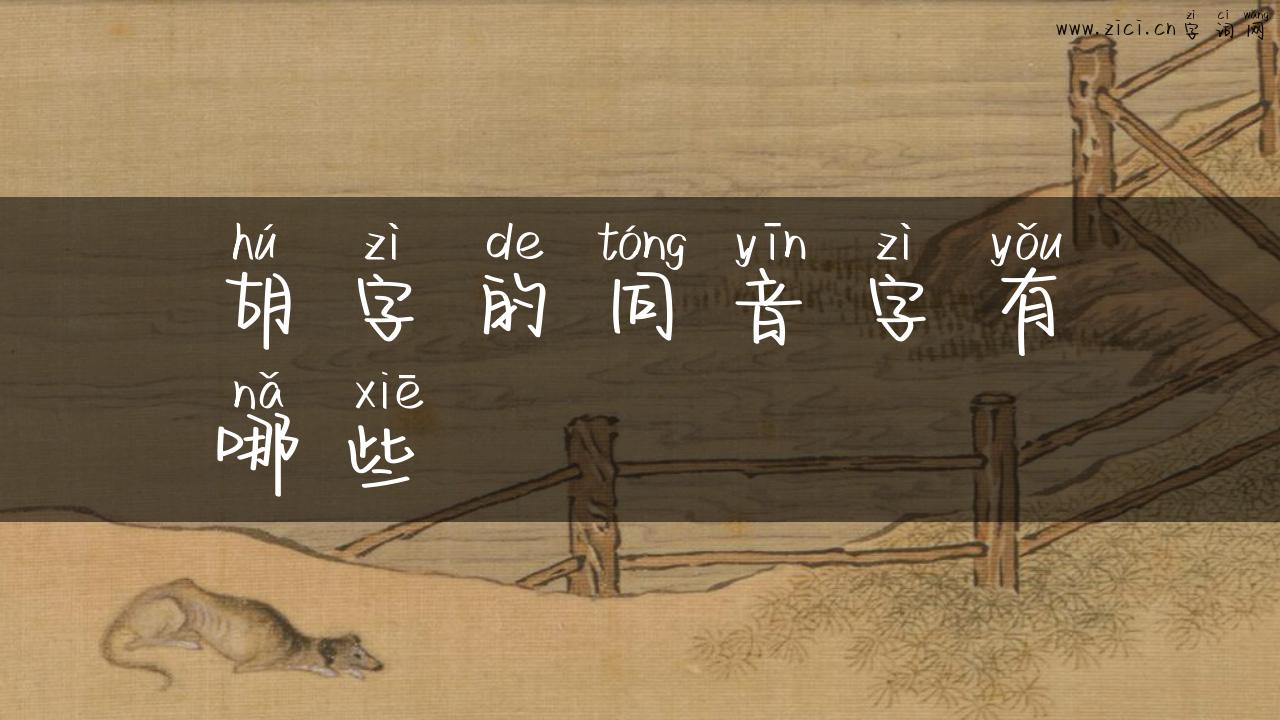 zì cí wǎng
www.zici.cn 字词网
hú zì de tóng yīn zì yǒu
胡字的同音字有
nǎ xiē
哪些